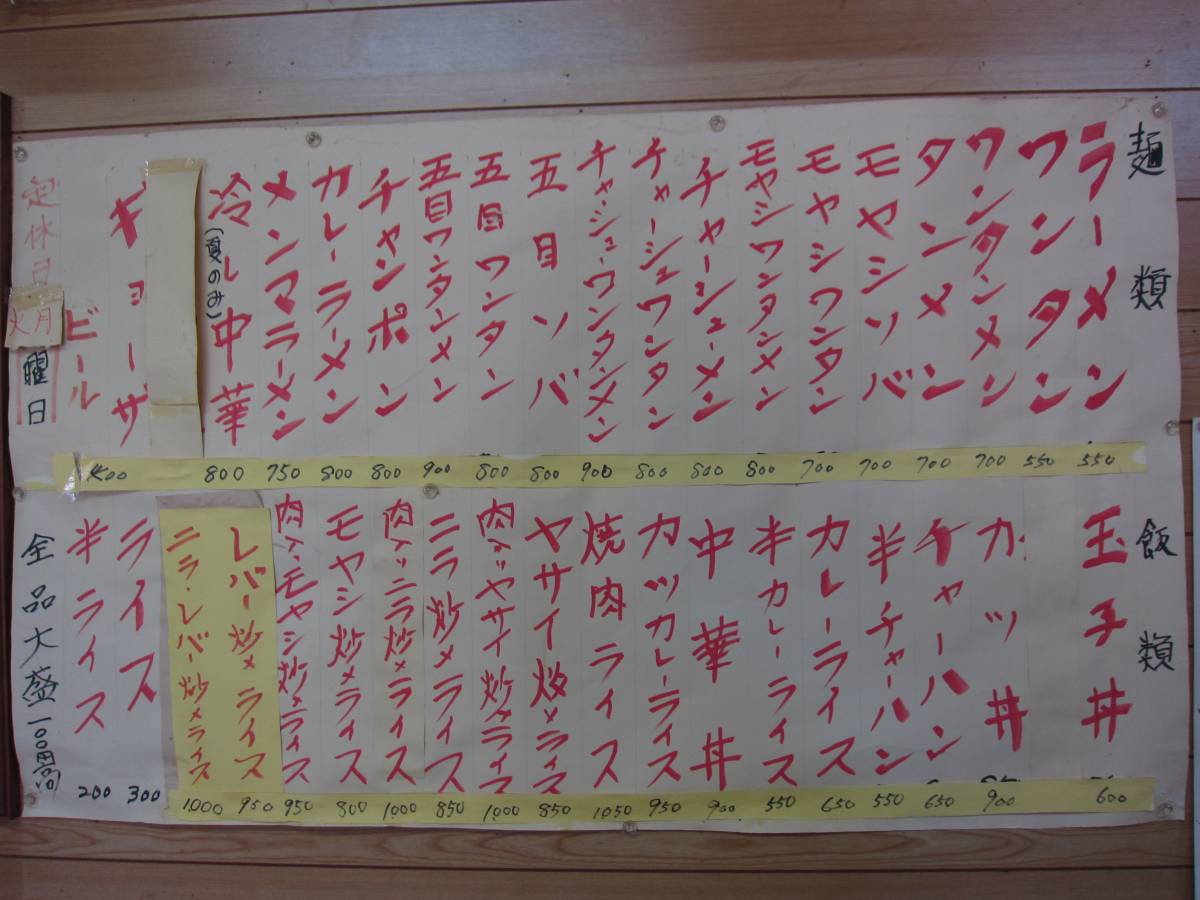 麺類
ラーメン 550
ワンタン 550
ワンタンメン 700
タンメン 700
モヤシソバ 700
モヤシワンタン 700
モヤシワンタンメン 800
チャーシューメン 800
チャーシュウワンタン 800
チャーシューワンタンメン 900
五目ソバ 800
五目ワンタン 800
五目ワンタンメン 900
チャンポン 800
カレーラーメン 800
メンマラーメン 750
冷し中華 800
(夏のみ)
ギョーザ 400
ビール
定休日
月火曜日
飯類
玉子丼 600
カツ丼 900
チャーハン 650
半チャーハン 550
カレーライス 650
半カレーライス 550
中華丼 900
カツカレーライス 950
焼肉ライス 1050
ヤサイ炒メライス 850
肉入ヤサイ炒メライス 1000
ニラ炒メライス 850
肉入ニラ炒メライス 1000
モヤシ炒メライス 800
肉入モヤシ炒メライス 950
レバー炒メライス 950
ニラ・レバー炒メライス 1000
ライス 300
半ライス 200
全品大盛一〇〇円高